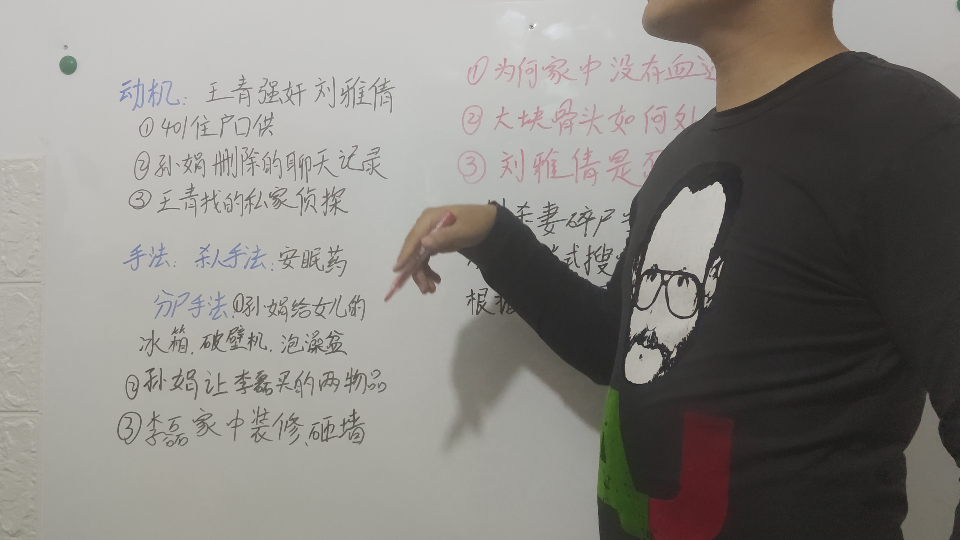 动机：王青强奸刘雅倩
①401住户口供
②孙娟删除的聊天记录
③王青找的私家侦探
手法：杀人手法：安眠药
分尸手法：①孙娟给女儿的
冰箱、破壁机、泡澡盆
②孙娟让李磊买的两物品
③李磊家中装修、砸墙
①为何家中没有血迹
②大块骨头如何处
③刘雅倩是否
杀妻碎尸
式搜
根据